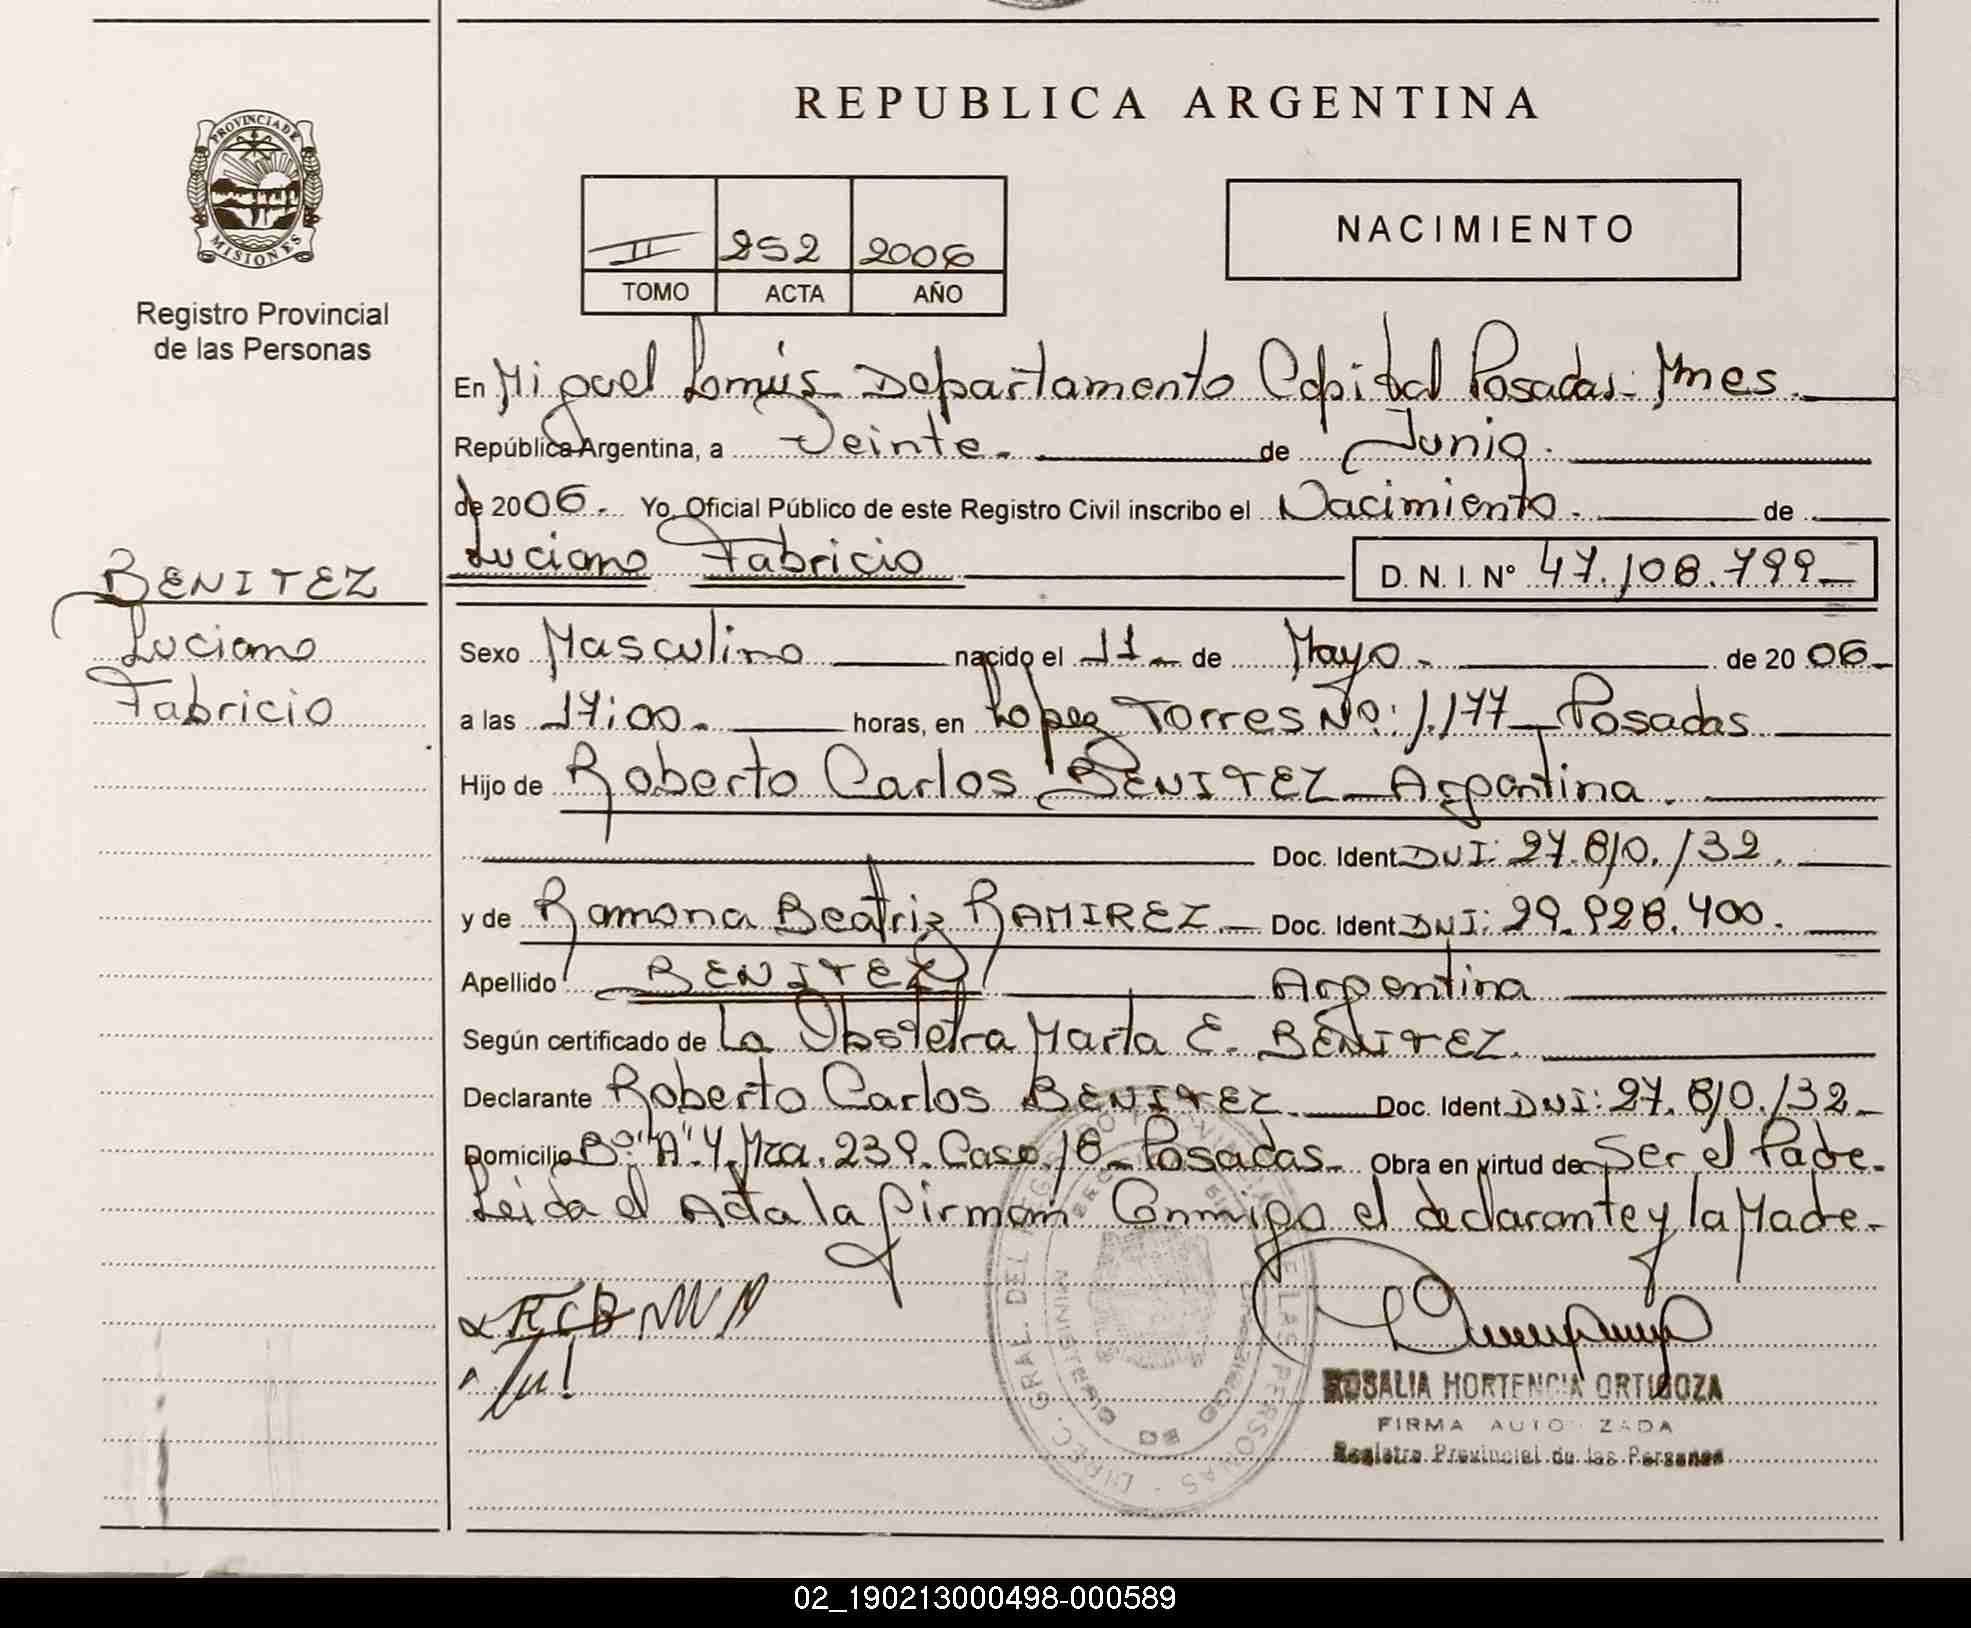 REPUBLICA ARGENTINA
PROVINCIA DE
MISIONES
Registro Provincial
de las Personas
NACIMIENTO
II 252 2006
TOMO ACTA AÑO
En Miguel Lanús Departamento Capital Posadas- Mnes.
República Argentina, a Veinte. de Junio.
de 2006. Yo, Oficial Público de este Registro Civil inscribo el Nacimiento. de
Luciano Fabricio D. N. I. Nº 47.108.799
BENITEZ
Luciano
Fabricio
Sexo Masculino nacido el 11 de Mayo. de 2006
a las 17:00. horas, en Lopez Torres Nº: 1.177 Posadas
Hijo de Roberto Carlos BENITEZ Argentina.
Doc. Ident. DNI: 27.810.132.
y de Ramona Beatriz RAMIREZ. Doc. Ident. DNI: 29.928.400.
Apellido BENITEZ Argentina
Según certificado de La Obstetra Marta E. BENITEZ.
Declarante Roberto Carlos BENITEZ. Doc. Ident. DNI: 27.810.132
Domicilio Bº "A" 4. Mza. 239. Casa. 18 Posadas Obra en virtud de Ser el Padre.
Leida el Acta la firman Conmigo el declarante y la Madre
ROSALIA HORTENCIA ORTIGOZA
FIRMA AUTORIZADA
Registro Provincial de las Personas
02_190213000498-000589